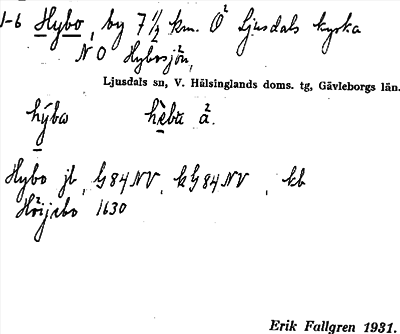 1-6 Hybo, by 7 1/2 km. O Ljusdals kyrka
NO Hybosjön,
Ljusdals sn, V. Hälsinglands doms. tg, Gävleborgs län.
hýbω hèbω å.
Hybo jb, G84NV, kG84NV, kb
1630
Erik Fallgren 1931.